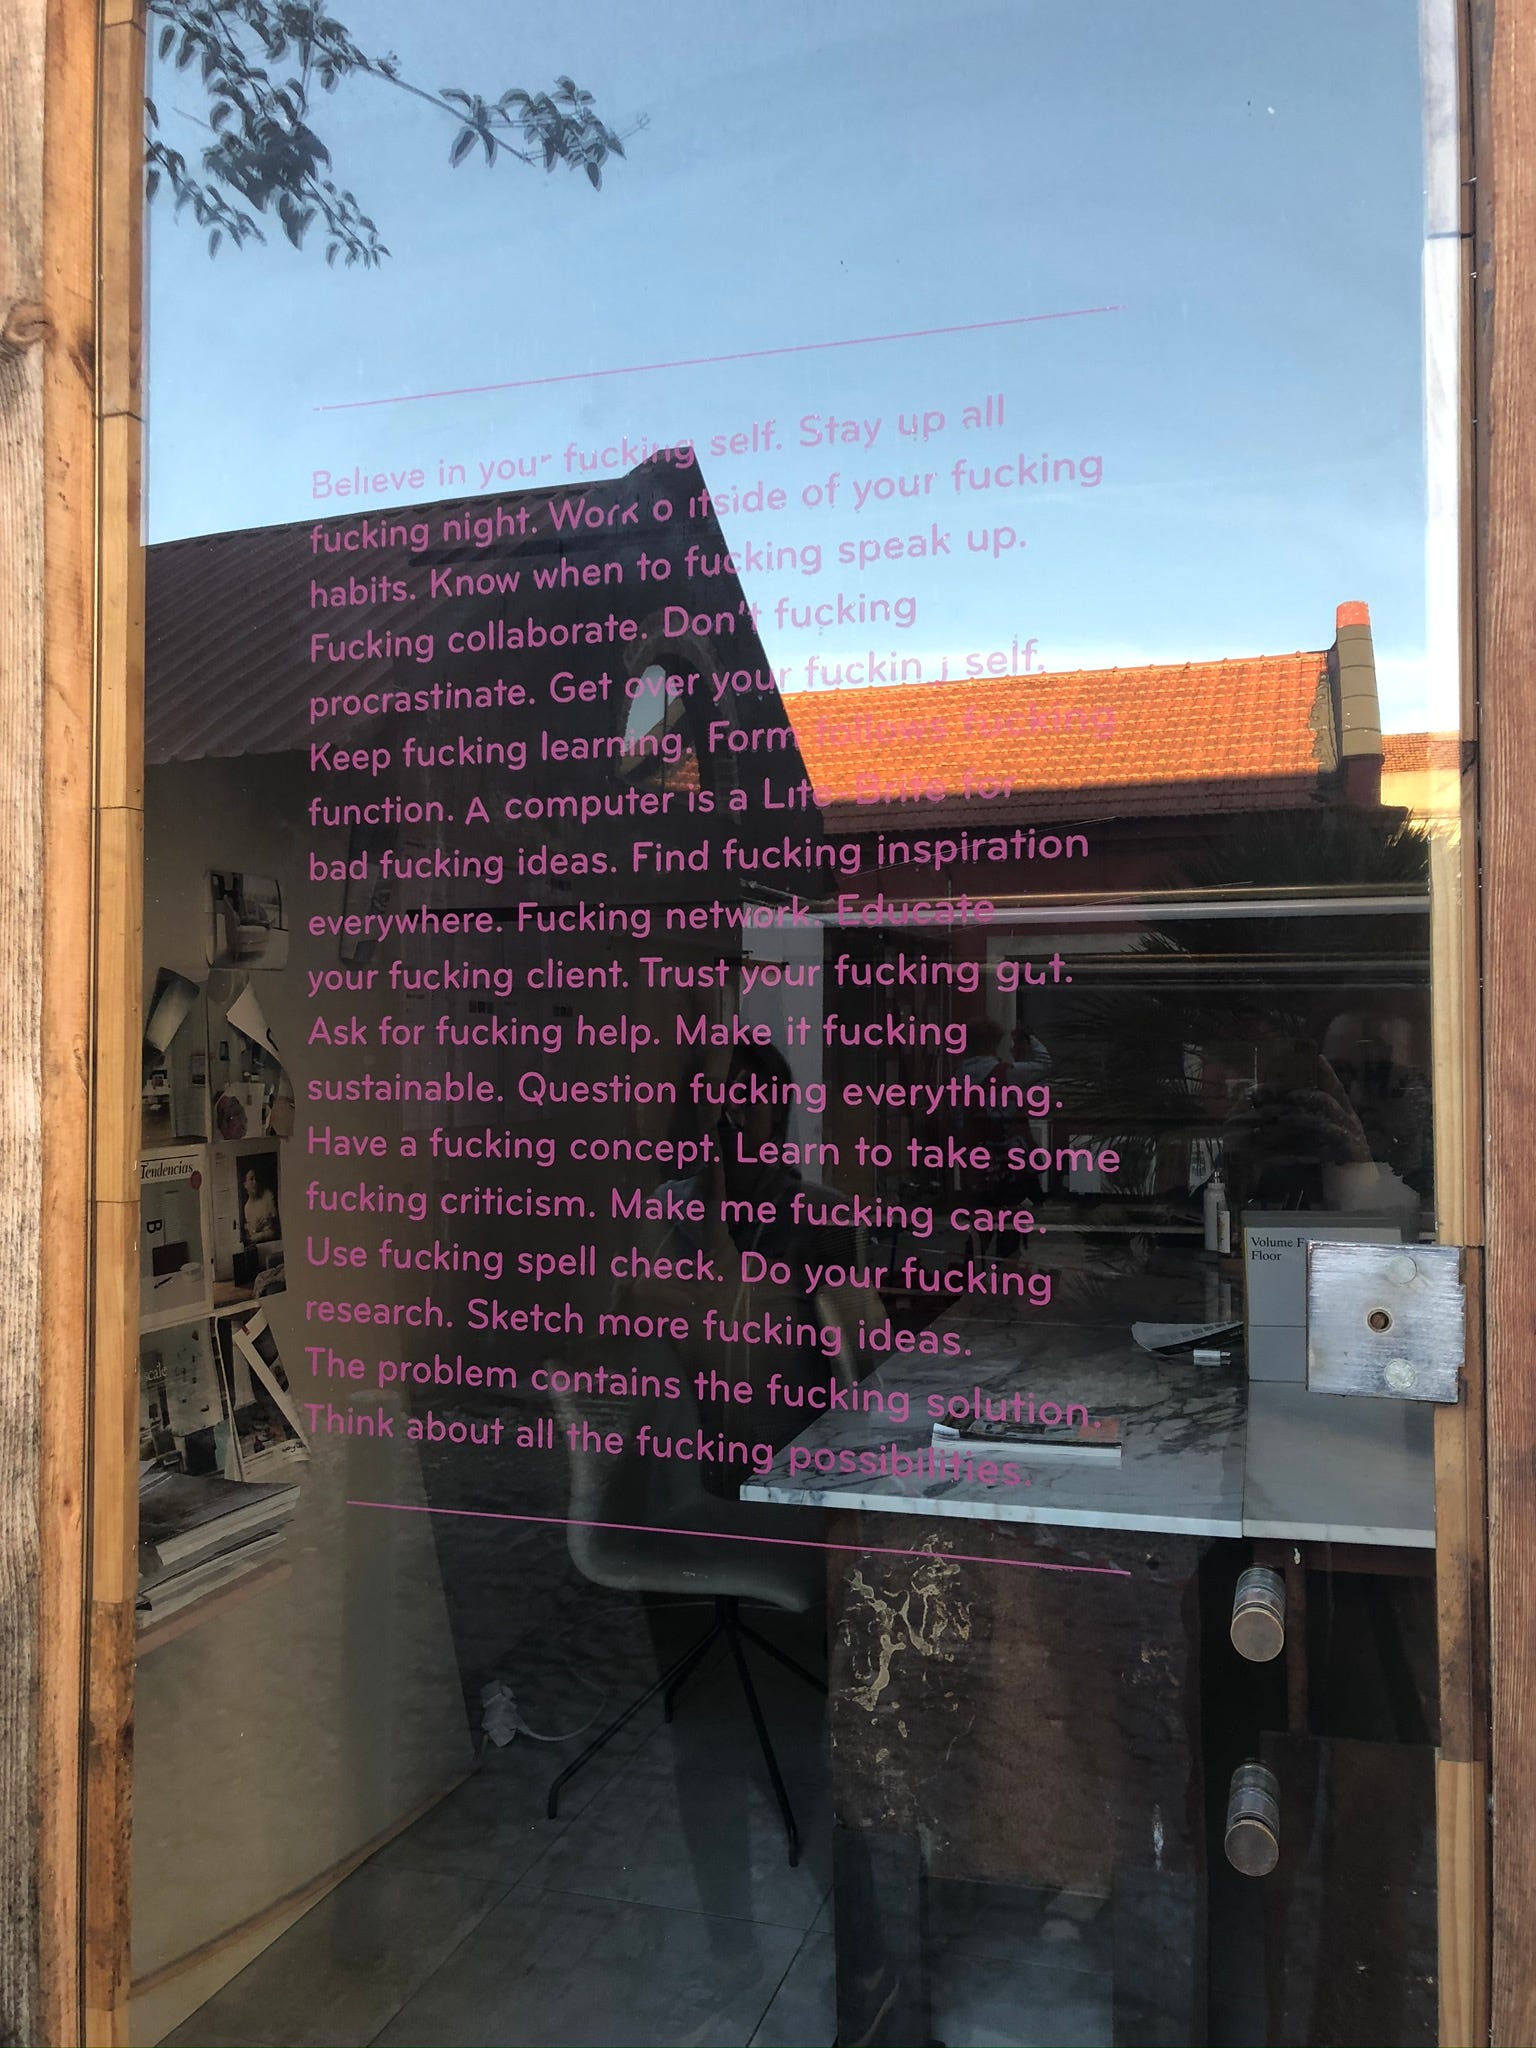 Believe in your fucking self. Stay up all
fucking night. Work outside of your fucking
habits. Know when to fucking speak up.
Fucking collaborate. Don't fucking
procrastinate. Get over your fucking self.
Keep fucking learning. Form follows fucking
function. A computer is a Lite-Brite for
bad fucking ideas. Find fucking inspiration
everywhere. Fucking network. Educate
your fucking client. Trust your fucking gut.
Ask for fucking help. Make it fucking
sustainable. Question fucking everything.
Have a fucking concept. Learn to take some
fucking criticism. Make me fucking care.
Use fucking spell check. Do your fucking
research. Sketch more fucking ideas.
The problem contains the fucking solution.
Think about all the fucking possibilities.
Tendencias
B
scale
Volume
Floor